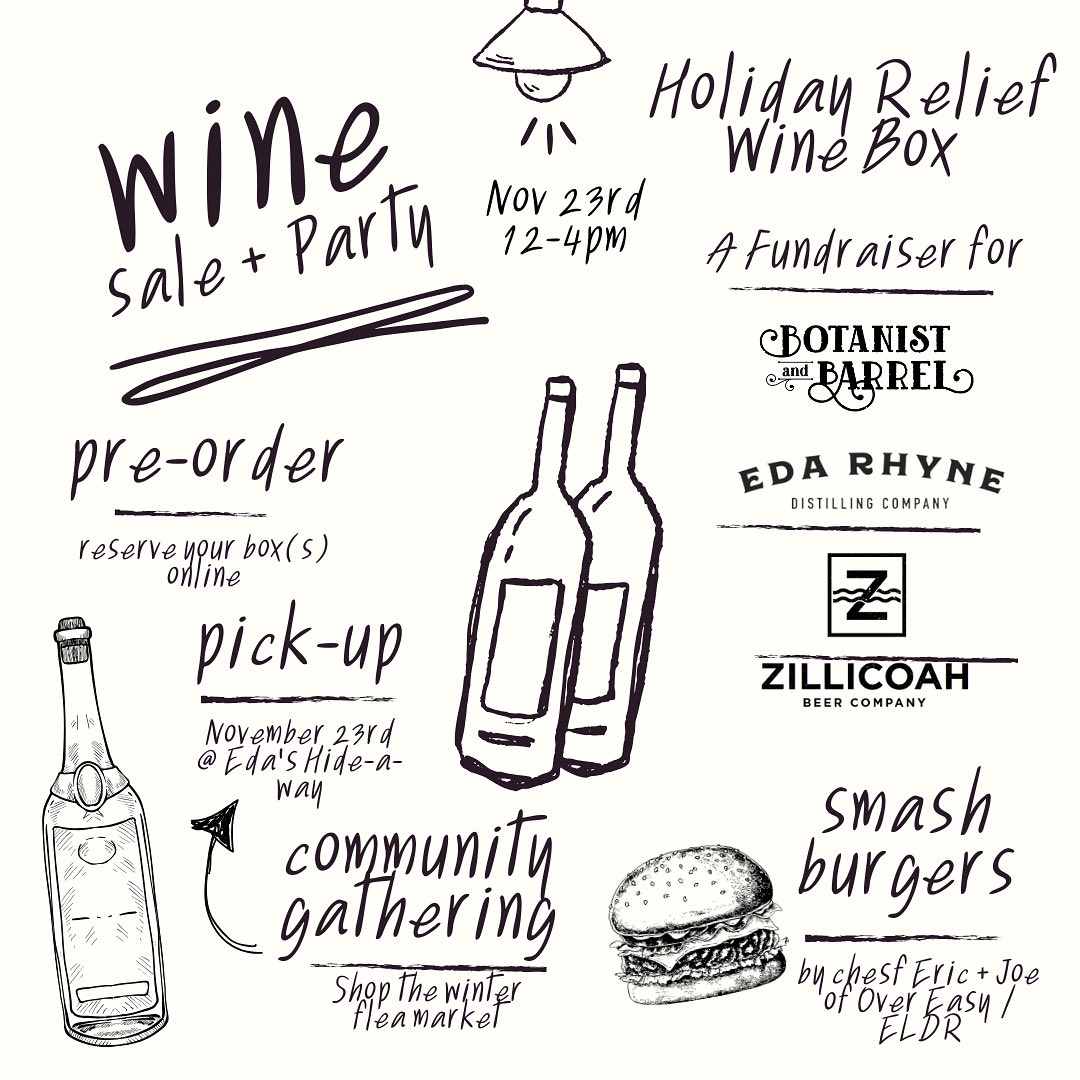 wine
sale + Party
Nov 23rd
12-4pm
Holiday Relief
Wine Box
A Fundraiser for
BOTANIST
and BARREL
EDA RHYNE
DISTILLING COMPANY
Z
ZILLICOAH
BEER COMPANY
pre-order
reserve your box(s)
online
pick-up
November 23rd
@ Eda's Hide-a-
way
community
gathering
Shop the winter
flea market
smash
burgers
by chesf Eric + Joe
of Over Easy /
ELDR